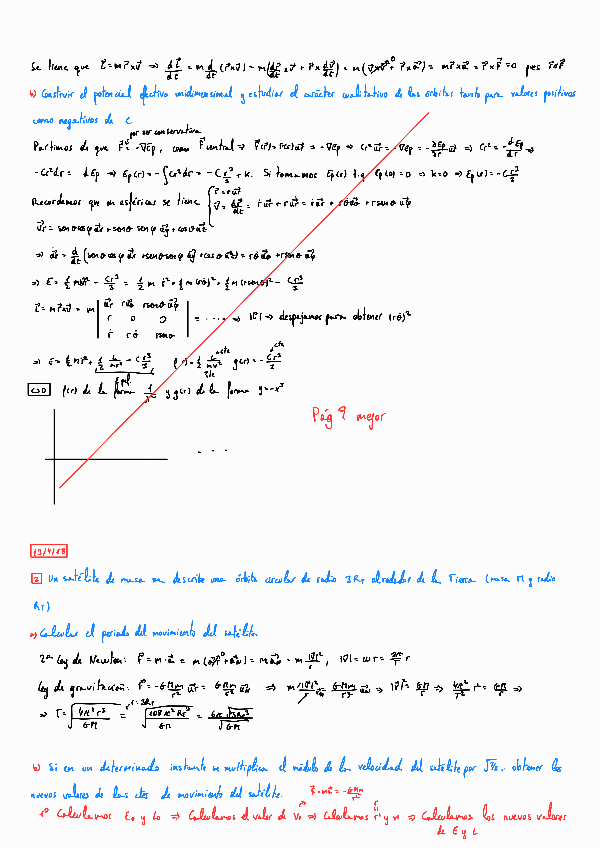 Se tiene que L⃗ = m r⃗ × v⃗ ⇒ dL⃗/dt = m d/dt (r⃗×v⃗) = m(dr⃗/dt × v⃗ + r⃗ × dv⃗/dt) = m(v⃗×v⃗⁰ + r⃗×a⃗) = m r⃗×a⃗ = r⃗×F⃗ = 0 pues r⃗ ∥ F⃗
b) Construir el potencial efectivo unidimensional y estudiar el carácter cualitativo de las órbitas tanto para valores positivos
como negativos de C
por ser conservativa
Partimos de que F⃗ = -∇Ep, como F⃗ central ⇒ F⃗(r) = F(r) u⃗r = -∇Ep ⇒ Cr² u⃗r = -∇Ep = -∂Ep/∂r u⃗r ⇒ Cr² = -dEp/dr ⇒
-Cr²dr = dEp ⇒ Ep(r) = -∫Cr²dr = -C r³/3 + k. Si tomamos Ep(r) t.q. Ep(0) = 0 ⇒ k=0 ⇒ Ep(r) = -C r³/3
Recordemos que en esféricas se tiene { r⃗ = r u⃗r
v⃗ = dr⃗/dt = ṙ u⃗r + r u̇⃗r = ṙ u⃗r + r θ̇ u⃗θ + r senθ φ̇ u⃗φ
u⃗r = senθ cosφ u⃗x + senθ senφ u⃗y + cosθ u⃗z
⇒ E = ½ m v⃗² - Cr³/3 = ½ m ṙ² + ½ m (rθ̇)² + ½ m (r senθ φ̇)² - Cr³/3
= ···· ⇒ |L⃗| → despejamos para obtener (rθ̇)²
C>0 f(r) de la forma 1/r² y g(r) de la forma y=-x³
Pág 9 mejor
. . .
13/4/18
2 Un satélite de masa m describe una órbita circular de radio 3R_T alrededor de la Tierra (masa M y radio
R_T)
a) Calcular el periodo del movimiento del satélite.
2ª Ley de Newton: F⃗ = m·a⃗ = m(a⃗t⁰ + a⃗n) = m a⃗n = m |v⃗|²/r, |v⃗| = ωr = 2π/T r
Ley de gravitación: F⃗ = -G Mm/r² u⃗r = G Mm/r² u⃗n ⇒ m |v⃗|²/r u⃗n = G Mm/r² u⃗n ⇒ |v⃗|² = GM/r ⇒ 4π²/T² r² = GM/r ⇒
r = 3R_T
⇒ T = √(4π² r³/GM) = √(108π² R_T³/GM) = 6π√(3R_T³)/√(GM)
b) Si en un determinado instante se multiplica el módulo de la velocidad del satélite por √3/2, obtener los
nuevos valores de las ctes de movimiento del satélite. F⃗ = m a⃗ = -G Mm/r²
1º Calculamos E₀ y L₀ ⇒ Calculamos el valor de v₀ ⇒ Calculamos ⇒ Calculamos los nuevos valores
de E y L